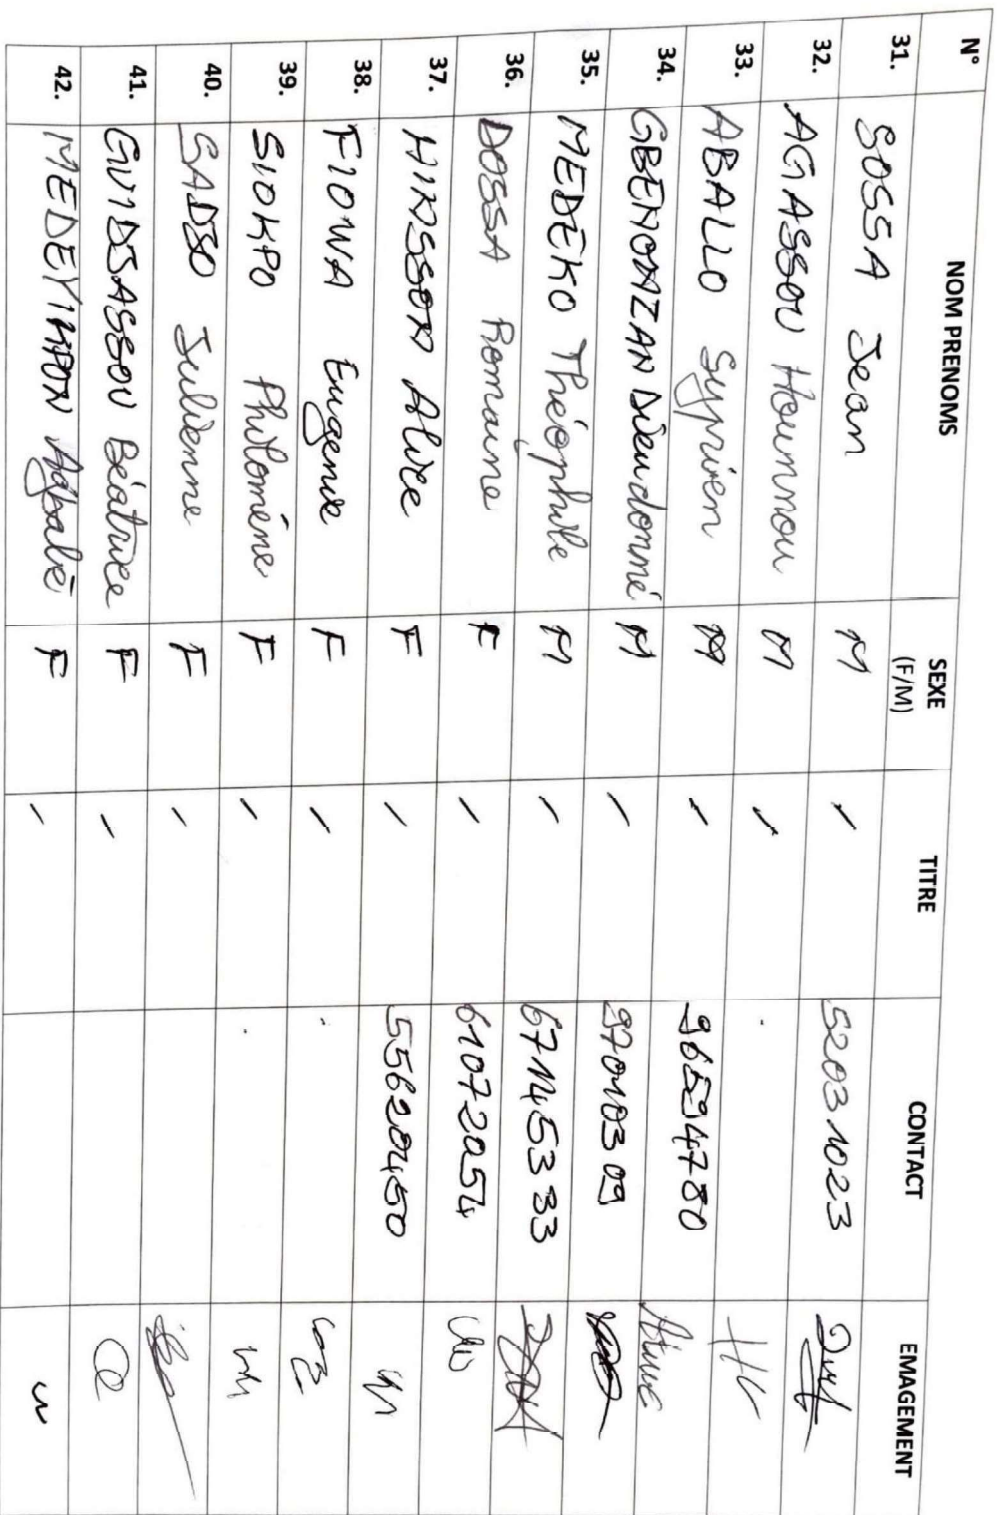 N° NOM PRENOMS SEXE (F/M) TITRE CONTACT EMAGEMENT
31. SOSSA Jean M / 52031023
32. AGASSOU Hounnou M /
33. ABALLO Syprien M / 96594780
34. GBENONZAN Dieudonné M / 97010309
35. MEDEKO Théophile M / 67145333
36. DOSSA Romaine F / 61072054
37. HINSSON Alice F / 55620450
38. FIOWA Eugenie F /
39. SIOKPO Philomène F /
40. SADSO Julienne F /
41. GUIDJASSOU Béatrice F /
42. MEDEYINPON Agbalè F /